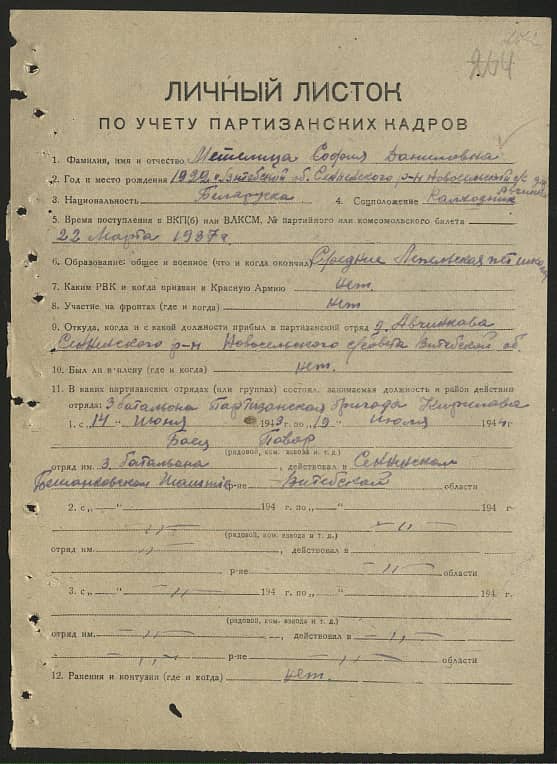 264
ЛИЧНЫЙ ЛИСТОК
ПО УЧЕТУ ПАРТИЗАНСКИХ КАДРОВ
1. Фамилия, имя и отчество Метелица София Даниловна
2. Год и место рождения 1920 г. Витебской об. Сенненского р-н Новосельский с/с
3. Национальность Беларуска 4. Соцположение Калхозник
5. Время поступления в ВКП(б) или ВЛКСМ, № партийного или комсомольского билета
22 Марта 1937 г.
6. Образование: общее и военное (что и когда окончил) Средние Лепельская
7. Каким РВК и когда призван в Красную Армию нет
8. Участие на фронтах (где и когда) нет
9. Откуда, когда и с какой должности прибыл в партизанский отряд д. Авчинкова
Сенненского р-н Новосельского с/совета Витебской об.
10. Был ли в плену (где и когда) нет.
11. В каких партизанских отрядах (или группах) состоял, занимаемая должность и район действия
отряда: 3 батальона Партизанская бригада Кирилава
1. с „14 “ июня 1943 г. по „19 “ июля 1944 г.
Боец Повар
(рядовой, ком. взвода и т. д.)
отряд им. 3. батальана , действовал в Сенненском
р-не Витебской области
2. с „ “ 194 г. по „ “ 194 г.
(рядовой, ком. взвода и т. д.)
отряд им. , действовал в
р-не области
3. с „ “ 194 г. по „ “ 194 г.
(рядовой, ком. взвода и т. д.)
отряд им. , действовал в
р-не области
12. Ранения и контузии (где и когда) нет.